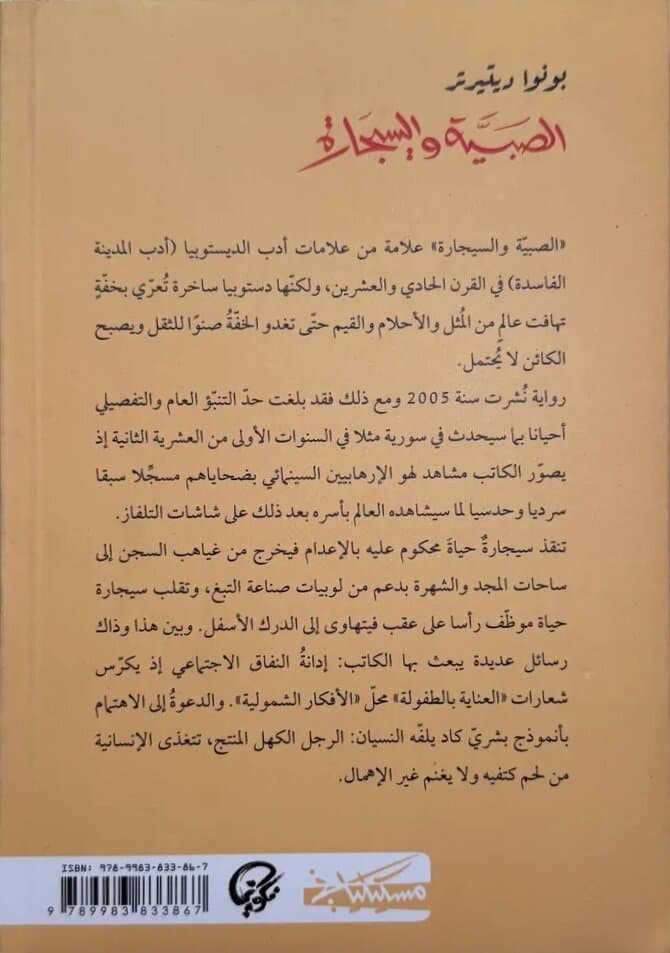 بونوا ديتيرتر
الصبيَّة والسيجارة
«الصبيّة والسيجارة» علامة من علامات أدب الديستوبيا (أدب المدينة
الفاسدة) في القرن الحادي والعشرين، ولكنّها دستوبيا ساخرة تُعرّي بخفّةٍ
تهافت عالمٍ من المُثل والأحلام والقيم حتّى تغدو الخفّةُ صنوًا للثقل ويصبح
الكائن لا يُحتمل.
رواية نُشرت سنة 2005 ومع ذلك فقد بلغت حدّ التنبّؤ العام والتفصيلي
أحيانا بما سيحدث في سورية مثلا في السنوات الأولى من العشرية الثانية إذ
يصوّر الكاتب مشاهد لهو الإرهابيين السينمائي بضحاياهم مسجِّلا سبقا
سرديا وحدسيا لما سيشاهده العالم بأسره بعد ذلك على شاشات التلفاز.
تنقذ سيجارةٌ حياةَ محكوم عليه بالإعدام فيخرج من غياهب السجن إلى
ساحات المجد والشهرة بدعم من لوبيات صناعة التبغ، وتقلب سيجارة
حياة موظّف رأسا على عقب فيتهاوى إلى الدرك الأسفل. وبين هذا وذاك
رسائل عديدة يبعث بها الكاتب: إدانةُ النفاق الاجتماعي إذ يكرّس
شعارات «العناية بالطفولة» محلّ «الأفكار الشمولية». والدعوةُ إلى الاهتمام
بأنموذج بشريّ كاد يلفّه النسيان: الرجل الكهل المنتج، تتغذى الإنسانية
من لحم كتفيه ولا يغنم غير الإهمال.
ISBN: 978-9983-833-86-7
9 789983 833867
تكوين
مسكيلياني